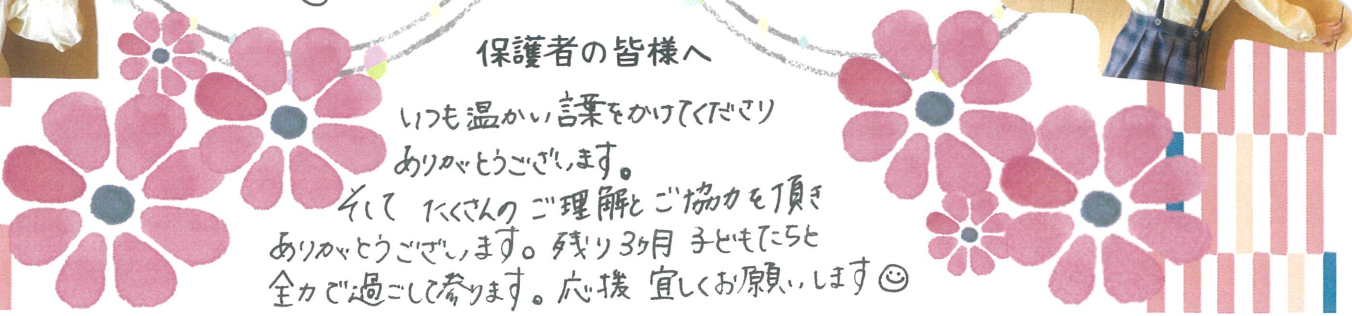 保護者の皆様へ
いつも温かい言葉をかけてくださり
ありがとうございます。
そして たくさんの ご理解と ご協力を頂き
ありがとうございます。残り3ヶ月 子どもたちと
全力で過ごして参ります。応援 宜しくお願いします☺